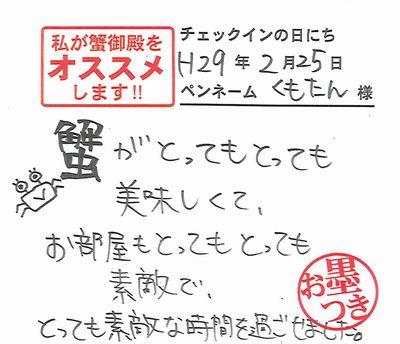 私が蟹御殿を
オススメ
します!!
チェックインの日にち
H29年2月25日
ペンネーム くもたん 様
蟹がとってもとっても
美味しくて、
お部屋もとってもとっても
素敵で、
とっても素敵な時間を過ごせました。
お墨つき